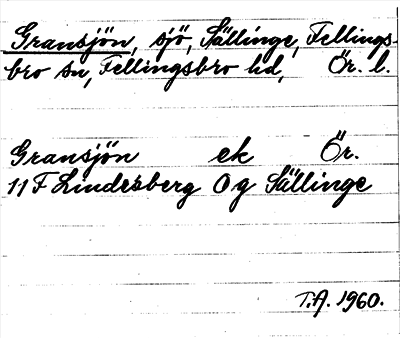 Gransjön, sjö, Sällinge, Fellings-
bro sn, Fellingsbro hd, Ör. l.
Gransjön ek Ör.
11 F Lindesberg O g Sällinge
T.A. 1960.